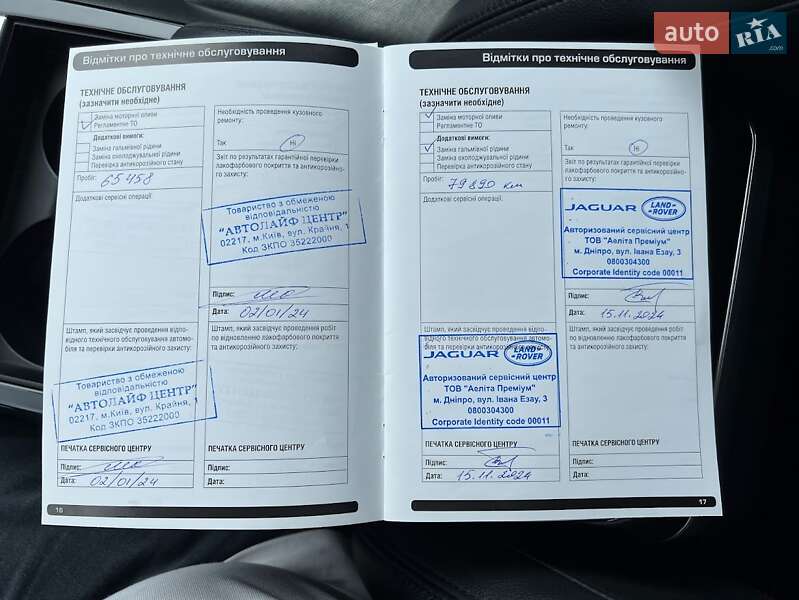 auto RIA.com
Відмітки про технічне обслуговування
ТЕХНІЧНЕ ОБСЛУГОВУВАННЯ
(зазначити необхідне)
Заміна моторної оливи
Регламентне ТО
Додаткові вимоги:
Заміна гальмівної рідини
Заміна охолоджувальної рідини
Перевірка антикорозійного стану
Пробіг: 65458
Додаткові сервісні операції:
Необхідність проведення кузовного
ремонту:
Так Ні
Звіт по результатах гарантійної перевірки
лакофарбового покриття та антикорозійно-
го захисту:
Товариство з обмеженою
відповідальністю
"АВТОЛАЙФ ЦЕНТР"
02217, м.Київ, вул. Крайня, 1
Код ЗКПО 35222000
Підпис:
Дата: 02/01/24
Штамп, який засвідчує проведення відпо-
відного технічного обслуговування автомо-
біля та перевірки антикорозійного захисту:
Товариство з обмеженою
відповідальністю
"АВТОЛАЙФ ЦЕНТР"
02217, м.Київ, вул. Крайня, 1
Код ЗКПО 35222000
ПЕЧАТКА СЕРВІСНОГО ЦЕНТРУ
Підпис:
Дата: 02/01/24
Штамп, який засвідчує проведення робіт
по відновленню лакофарбового покриття
та антикорозійного захисту:
ПЕЧАТКА СЕРВІСНОГО ЦЕНТРУ
Підпис:
Дата:
16
Відмітки про технічне обслуговування
ТЕХНІЧНЕ ОБСЛУГОВУВАННЯ
(зазначити необхідне)
Заміна моторної оливи
Регламентне ТО
Додаткові вимоги:
Заміна гальмівної рідини
Заміна охолоджувальної рідини
Перевірка антикорозійного стану
Пробіг: 79890 км
Додаткові сервісні операції:
Необхідність проведення кузовного
ремонту:
Так Ні
Звіт по результатах гарантійної перевірки
лакофарбового покриття та антикорозійно-
го захисту:
JAGUAR LAND-ROVER
Авторизований сервісний центр
ТОВ "Аеліта Преміум"
м. Дніпро, вул. Івана Езау, 3
0800304300
Corporate Identity code 00011
Підпис:
Дата: 15.11.2024
Штамп, який засвідчує проведення відпо-
відного технічного обслуговування автомо-
біля та перевірки антикорозійного захисту:
JAGUAR LAND-ROVER
Авторизований сервісний центр
ТОВ "Аеліта Преміум"
м. Дніпро, вул. Івана Езау, 3
0800304300
Corporate Identity code 00011
ПЕЧАТКА СЕРВІСНОГО ЦЕНТРУ
Підпис:
Дата: 15.11.2024
Штамп, який засвідчує проведення робіт
по відновленню лакофарбового покриття
та антикорозійного захисту:
ПЕЧАТКА СЕРВІСНОГО ЦЕНТРУ
Підпис:
Дата:
17